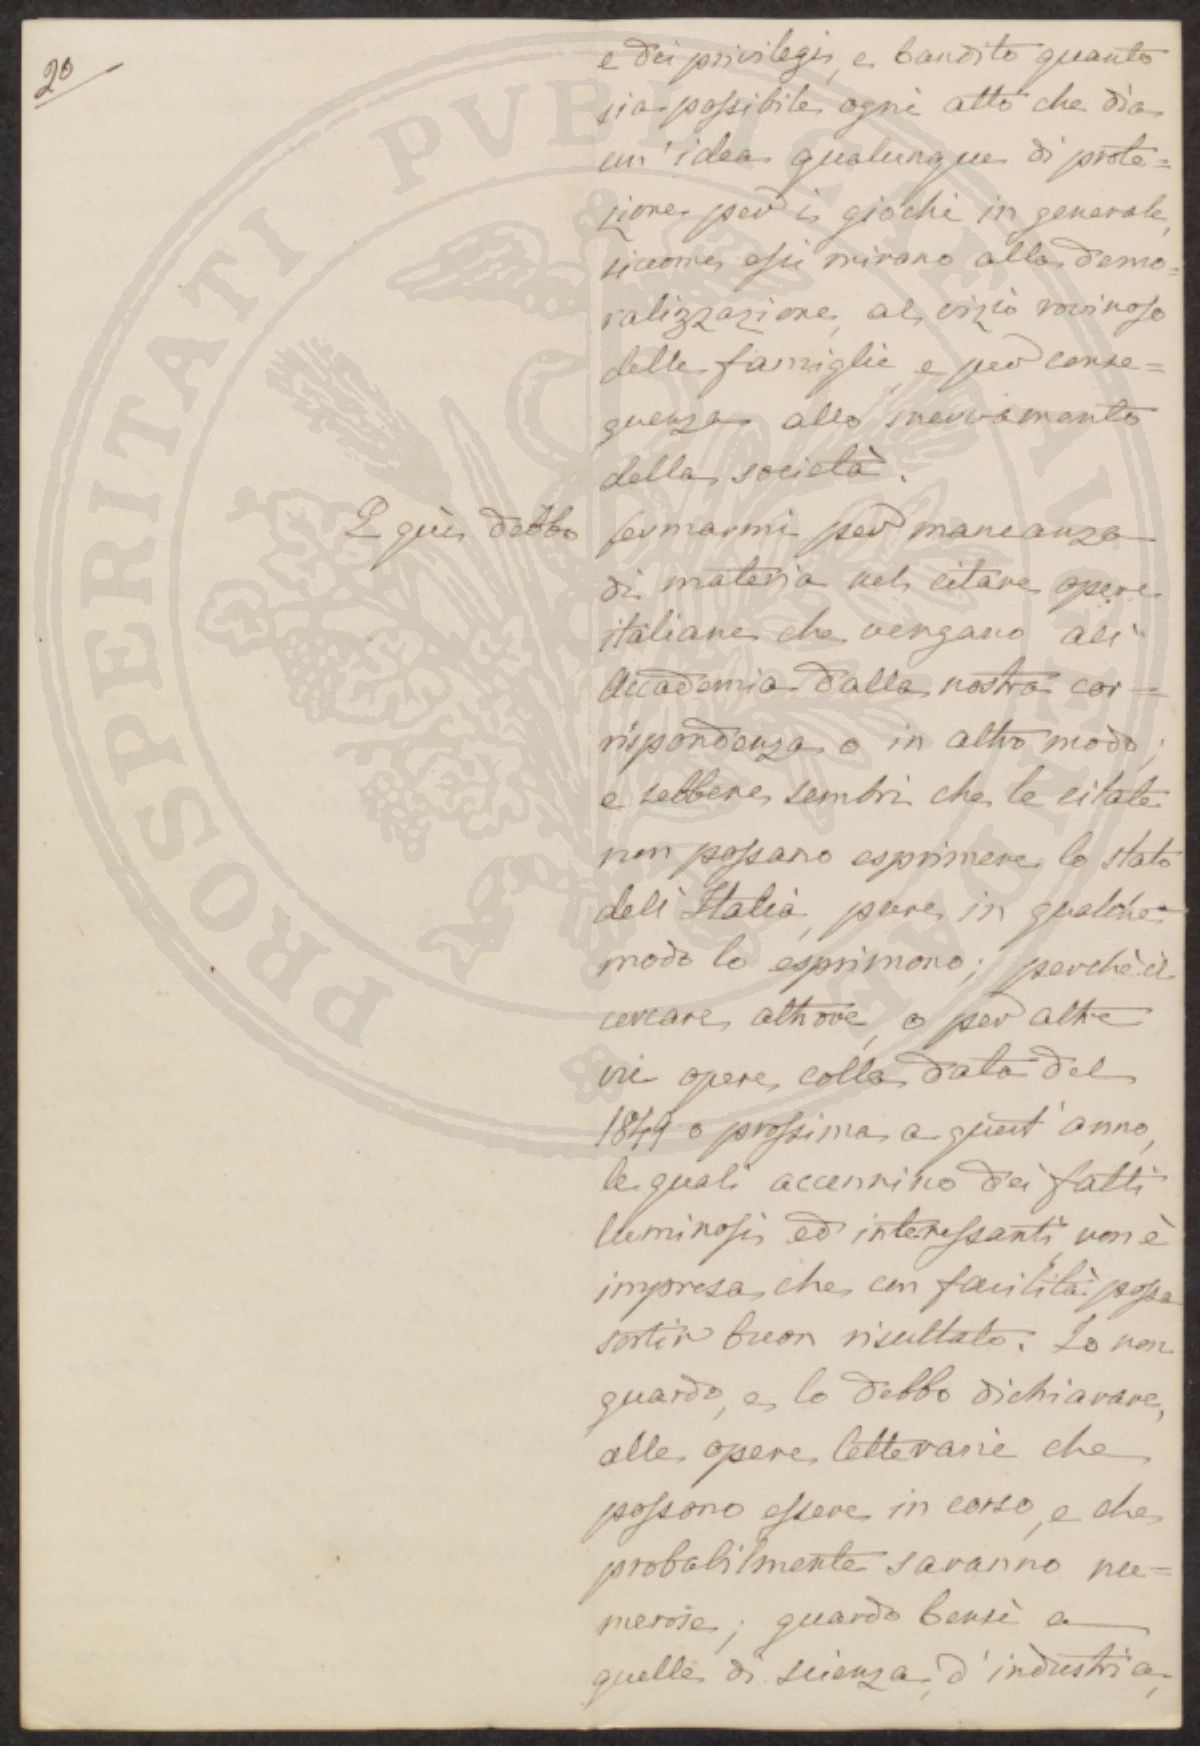 20
e dei privilegi, e bandito quanto
sia possibile ogni atto che dia
un' idea qualunque di prote=
zione per i giochi in generale,
siccome essi mirano alla demo=
ralizzazione, al vizio rovinoso
delle famiglie, e per conse=
guenza allo snervamento
della società.
E qui debbo fermarmi per mancanza
di materia nel citare opere
italiane che vengano all'
Accademia dalla nostra cor=
rispondenza o in altro modo;
e sebbene sembri che le citate
non possano esprimere lo stato
dell' Italia, pure in qualche
modo lo esprimono; perchè il
cercare altrove, o per altre
vie opere colla data del
1849 o prossima a quest' anno,
le quali accennino dei fatti
luminosi ed interessanti, non è
impresa che con facilità possa
sortir buon risultato. Io non
guardo, e lo debbo dichiarare,
alle opere letterarie che
possono essere in corso, e che
probabilmente saranno nu=
merose; guardo bensì a
quelle di scienza, d' industria,
PROSPERITATI PVBLICAE AVGENDAE